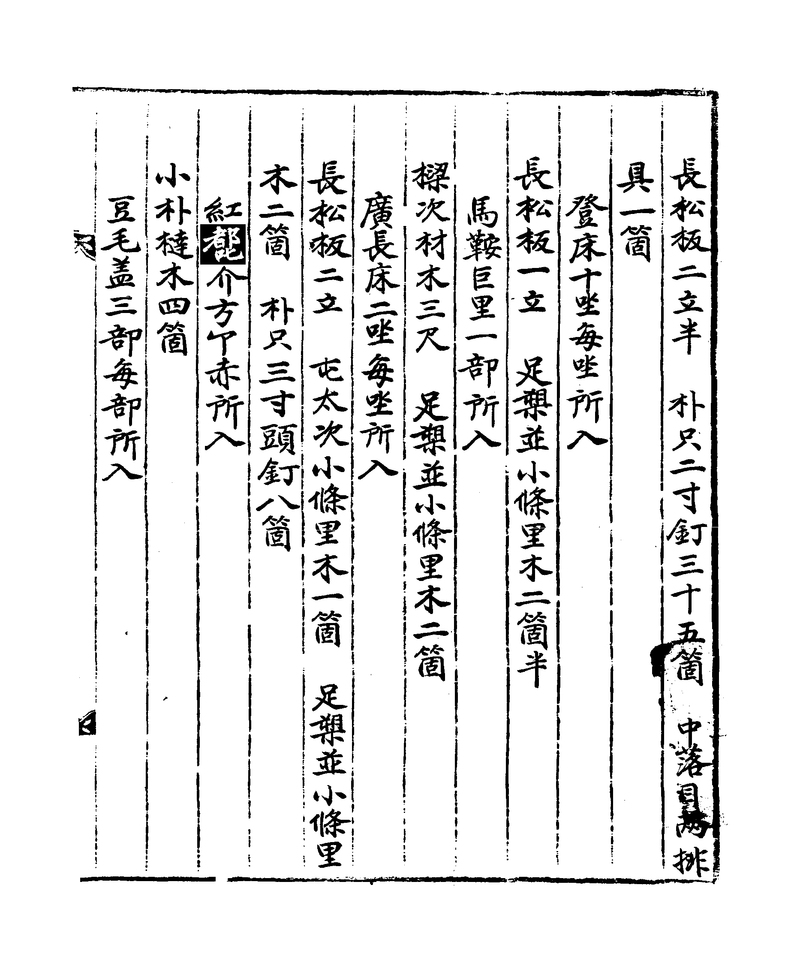 長松板二立半　朴只二寸釘三十五箇　中落目兩排
具一箇
登床十坐每坐所入
長松板一立　足槊並小條里木二箇半
馬鞍巨里一部所入
樑次材木三尺　足槊並小條里木二箇
廣長床二坐每坐所入
長松板二立　屯太次小條里木一箇　足槊並小條里
木二箇　朴只三寸頭釘八箇
紅都叱介方亇赤所入
小朴橽木四箇
豆毛盖三部每部所入